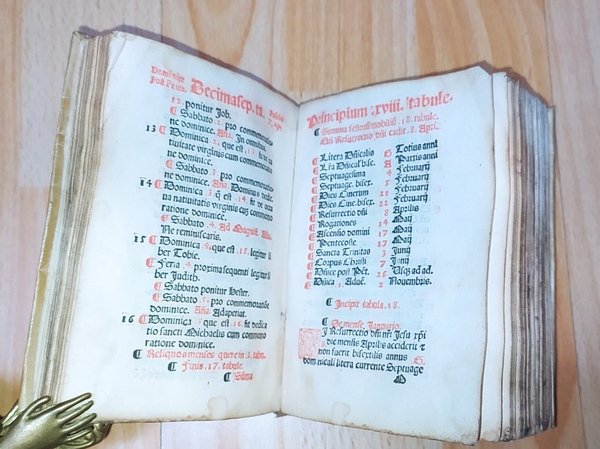 Dominice
Post Pente.
Decimasep. ta.
12. ponitur Job.
¶ Sabbato 2. pro commemoratio
ne dominice. Aña. In omnibus.
13 ¶ Dominica 2. que est 13.
tivitate virginis cum commemoratio
ne dominice.
¶ Sabbato 3. pro commemoratio
ne dominice. Aña. Dominus dedit.
14 ¶ Dominica 3. que est 14. fit de octa
va nativitatis virginis cum commemo
ratione dominice.
¶ Sabbato 4. Ad Magnifi. Aña.
Ne reminiscaris.
15 ¶ Dominica 4. que est 15. legitur li
ber Tobie.
¶ Feria 4. proximasequenti legitur li
ber Judith.
¶ Sabbato ponitur Hester.
¶ Sabbato 5. pro commemoratiōe
dominice. Aña. Adaperiat.
16 ¶ Dominica que est 16. fit dedica
tio sancti Michaelis cum commemo
ratione dominice.
¶ Reliquos menses quere in 3. tabu.
¶ Finis. 17. tabule.
¶ Sūma
Principium .xviii. tabule.
¶ Summa festorū mobiliū .18. tabule.
Dñi Resurrectio cadit .8. April.
¶ Litera Dñicalis G Totius anni
¶ Lr̄a Dñical' bise. A Partis anni
¶ Septuagesima 4 Februarij
¶ Septuage. bisex. 5 Februarij
¶ Dies Cinerum 21 Februarij
¶ Dies Cine. bisex. 22 Februarij
¶ Resurrectio dñi 8 Aprilis
¶ Rogationes 14 Maij
¶ Ascensio domini 17 Maij
¶ Pentecoste 27 Maij
¶ Sancta Trinitas 3 Junij
¶ Corpus Christi 7 Junij
¶ Dñice post Pēt. 26 Usq; ad ad.
¶ Dñica .1. Adue. 2 Nouembris.
¶ Incipit tabula .18.
¶ De mense. Januario.
SI Resurrectio dñi nr̄i Jesu xp̄i
die mensis Aprilis acciderit &
non fuerit bisextilis annus G,
dominicali litera currente Septuage